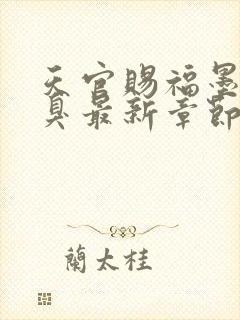 天官賜福墨
臭最新章節
蘭太桂